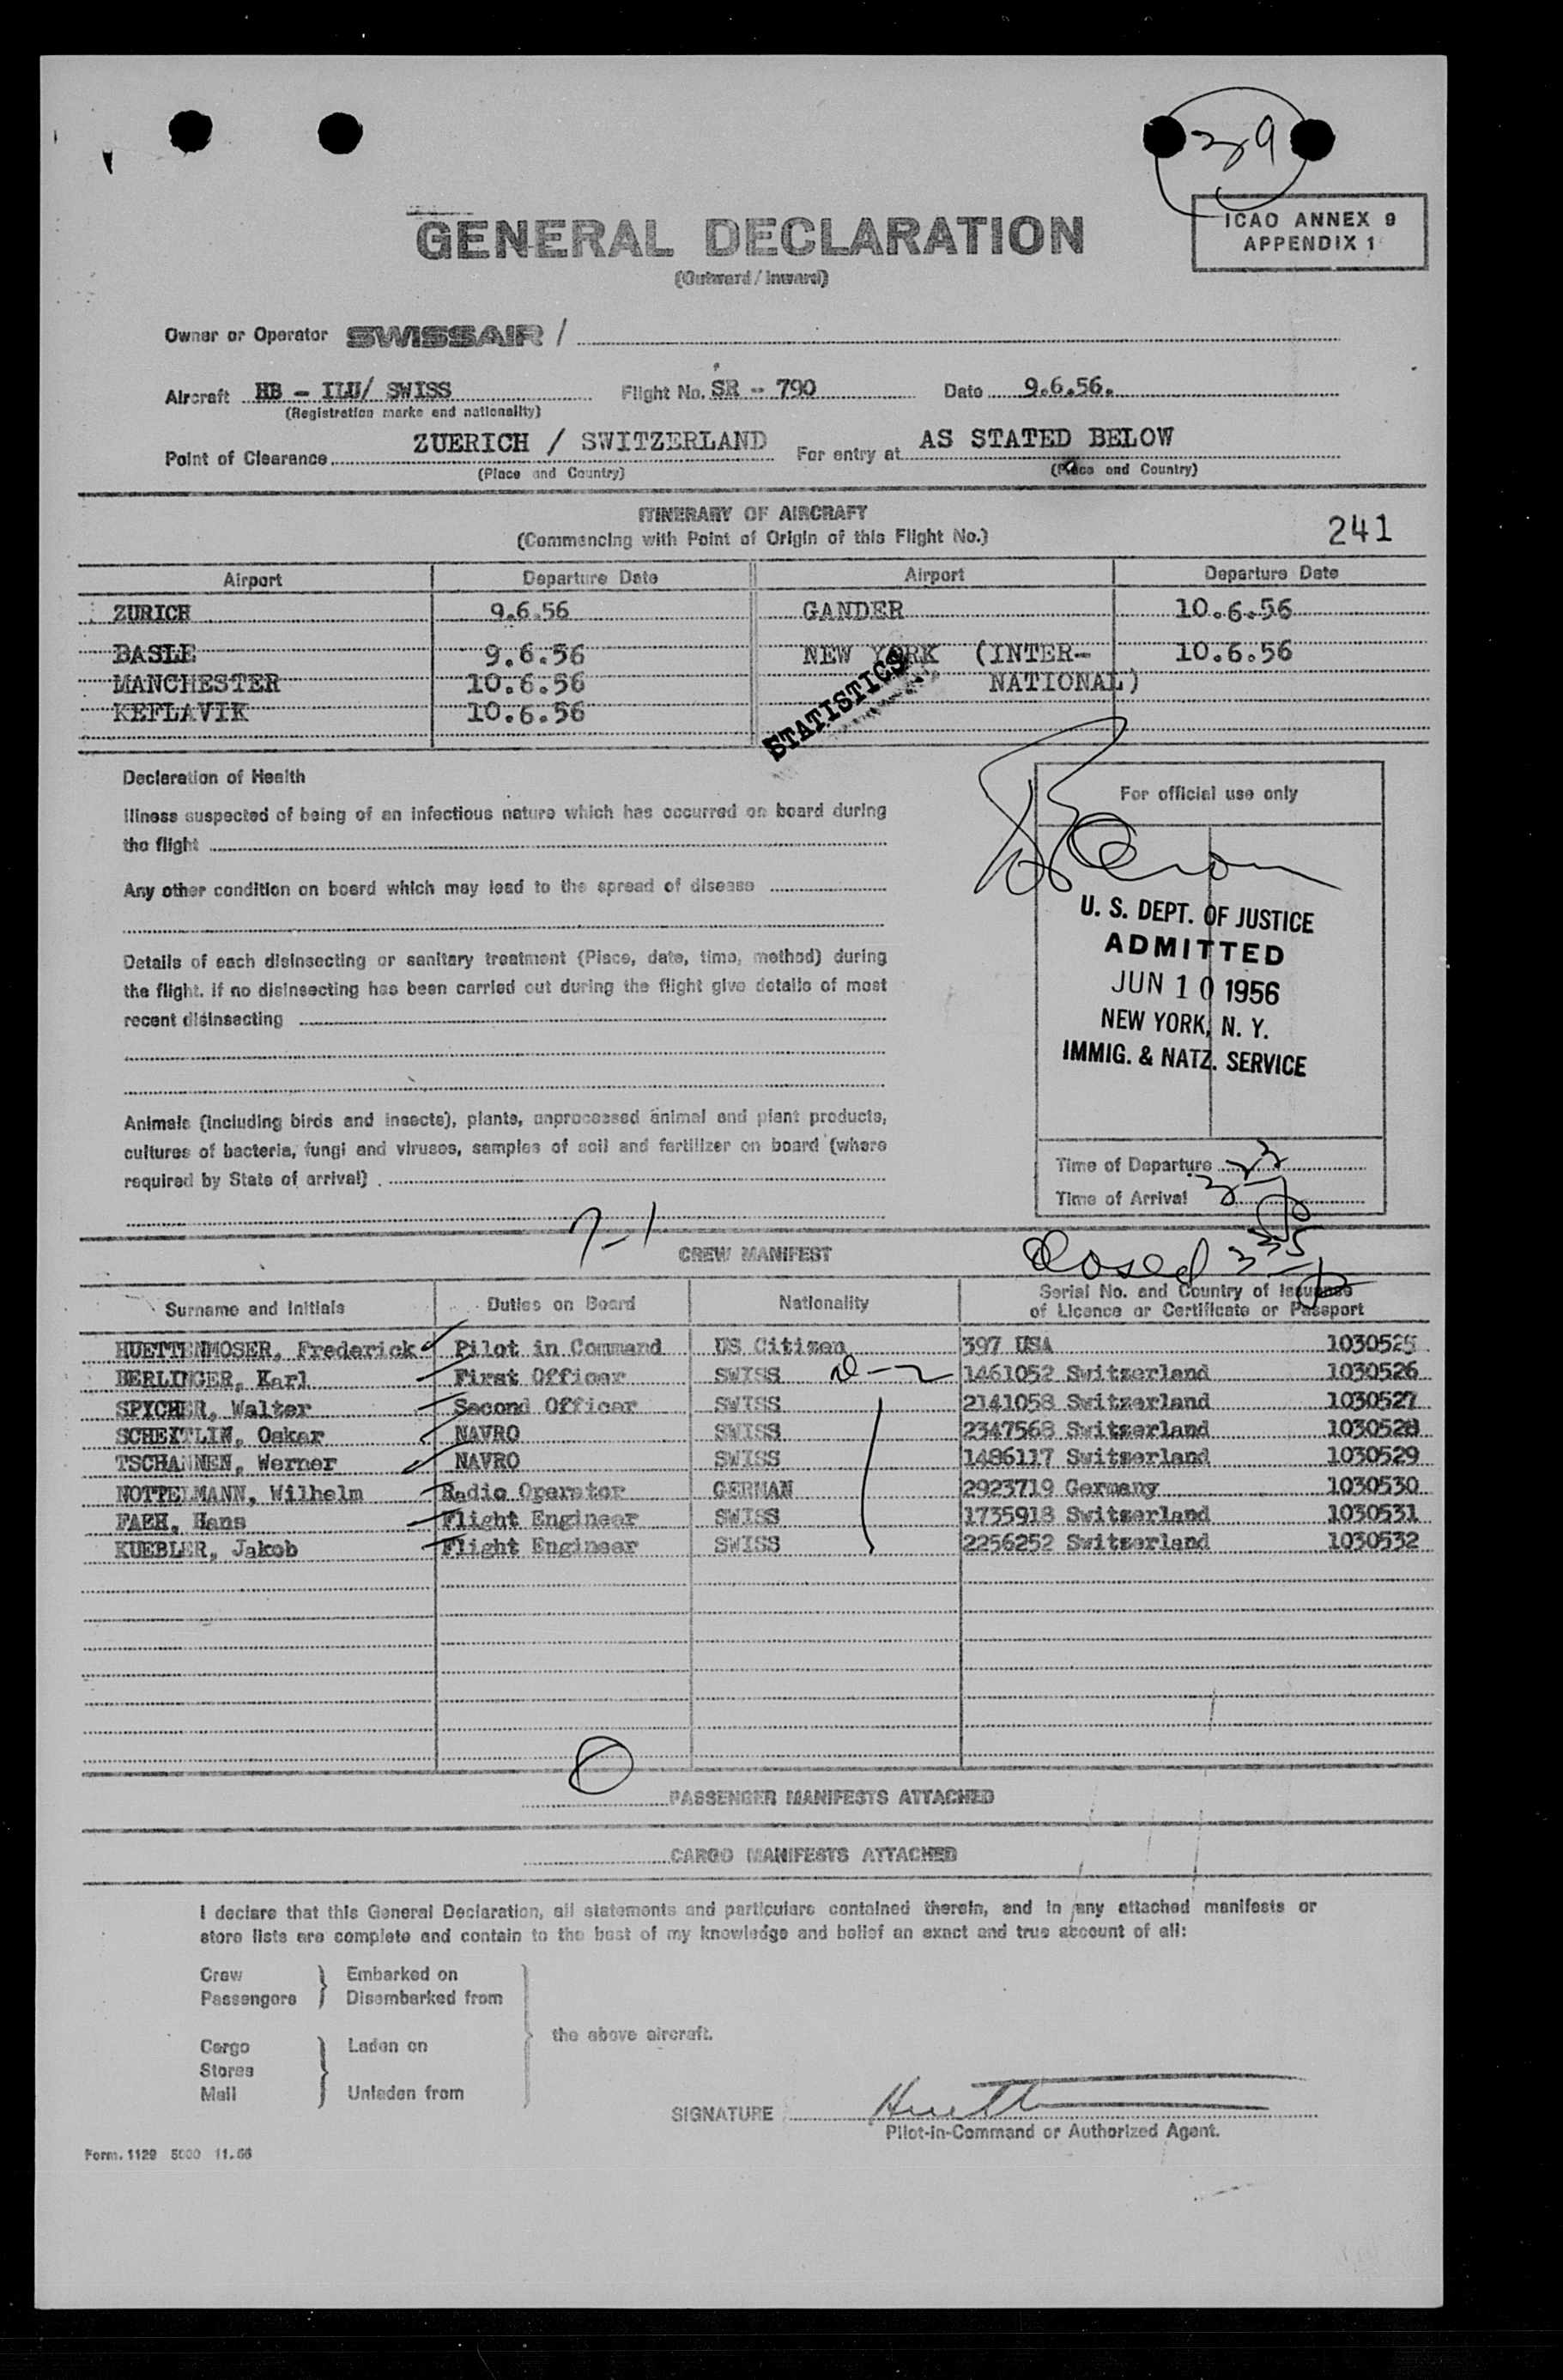 39
ICAO ANNEX 9
APPENDIX 1
GENERAL DECLARATION
(Outward / Inward)
Owner or Operator SWISSAIR /
Aircraft HB - ILU/ SWISS Flight No. SR - 790 Date 9.6.56.
(Registration marks and nationality)
Point of Clearance ZUERICH / SWITZERLAND For entry at AS STATED BELOW
(Place and Country) (Place and Country)
ITINERARY OF AIRCRAFT
(Commencing with Point of Origin of this Flight No.) 241
Airport Departure Date Airport Departure Date
ZURICH 9.6.56 GANDER 10.6.56
BASLE 9.6.56 NEW YORK (INTER- 10.6.56
MANCHESTER 10.6.56 NATIONAL)
KEFLAVIK 10.6.56
STATISTICS
Declaration of Health
Illness suspected of being of an infectious nature which has occurred on board during
the flight
Any other condition on board which may lead to the spread of disease
Details of each disinsecting or sanitary treatment (Place, date, time, method) during
the flight. If no disinsecting has been carried out during the flight give details of most
recent disinsecting
Animals (including birds and insects), plants, unprocessed animal and plant products,
cultures of bacteria, fungi and viruses, samples of soil and fertilizer on board (where
required by State of arrival)
For official use only
U. S. DEPT. OF JUSTICE
ADMITTED
JUN 10 1956
NEW YORK, N. Y.
IMMIG. & NATZ. SERVICE
Time of Departure
Time of Arrival
7-1
CREW MANIFEST
Closed
Surname and Initials Duties on Board Nationality Serial No. and Country of Issuance
of Licence or Certificate or Passport
HUETTENMOSER, Frederick Pilot in Command US Citizen 397 USA 1030525
BERLINGER, Karl First Officer SWISS 1461052 Switzerland 1030526
SPYCHER, Walter Second Officer SWISS 2141058 Switzerland 1030527
SCHEITLIN, Oskar NAVRO SWISS 2347568 Switzerland 1030528
TSCHANNEN, Werner NAVRO SWISS 1486117 Switzerland 1030529
NOTTELMANN, Wilhelm Radio Operator GERMAN 2923719 Germany 1030530
FAEH, Hans Flight Engineer SWISS 1735918 Switzerland 1030531
KUEBLER, Jakob Flight Engineer SWISS 2256252 Switzerland 1030532
PASSENGER MANIFESTS ATTACHED
CARGO MANIFESTS ATTACHED
I declare that this General Declaration, all statements and particulars contained therein, and in any attached manifests or
store lists are complete and contain to the best of my knowledge and belief an exact and true account of all:
Crew Embarked on
Passengers Disembarked from
the above aircraft.
Cargo Laden on
Stores
Mail Unladen from
SIGNATURE
Pilot-in-Command or Authorized Agent.
Form. 1129 5000 11.66